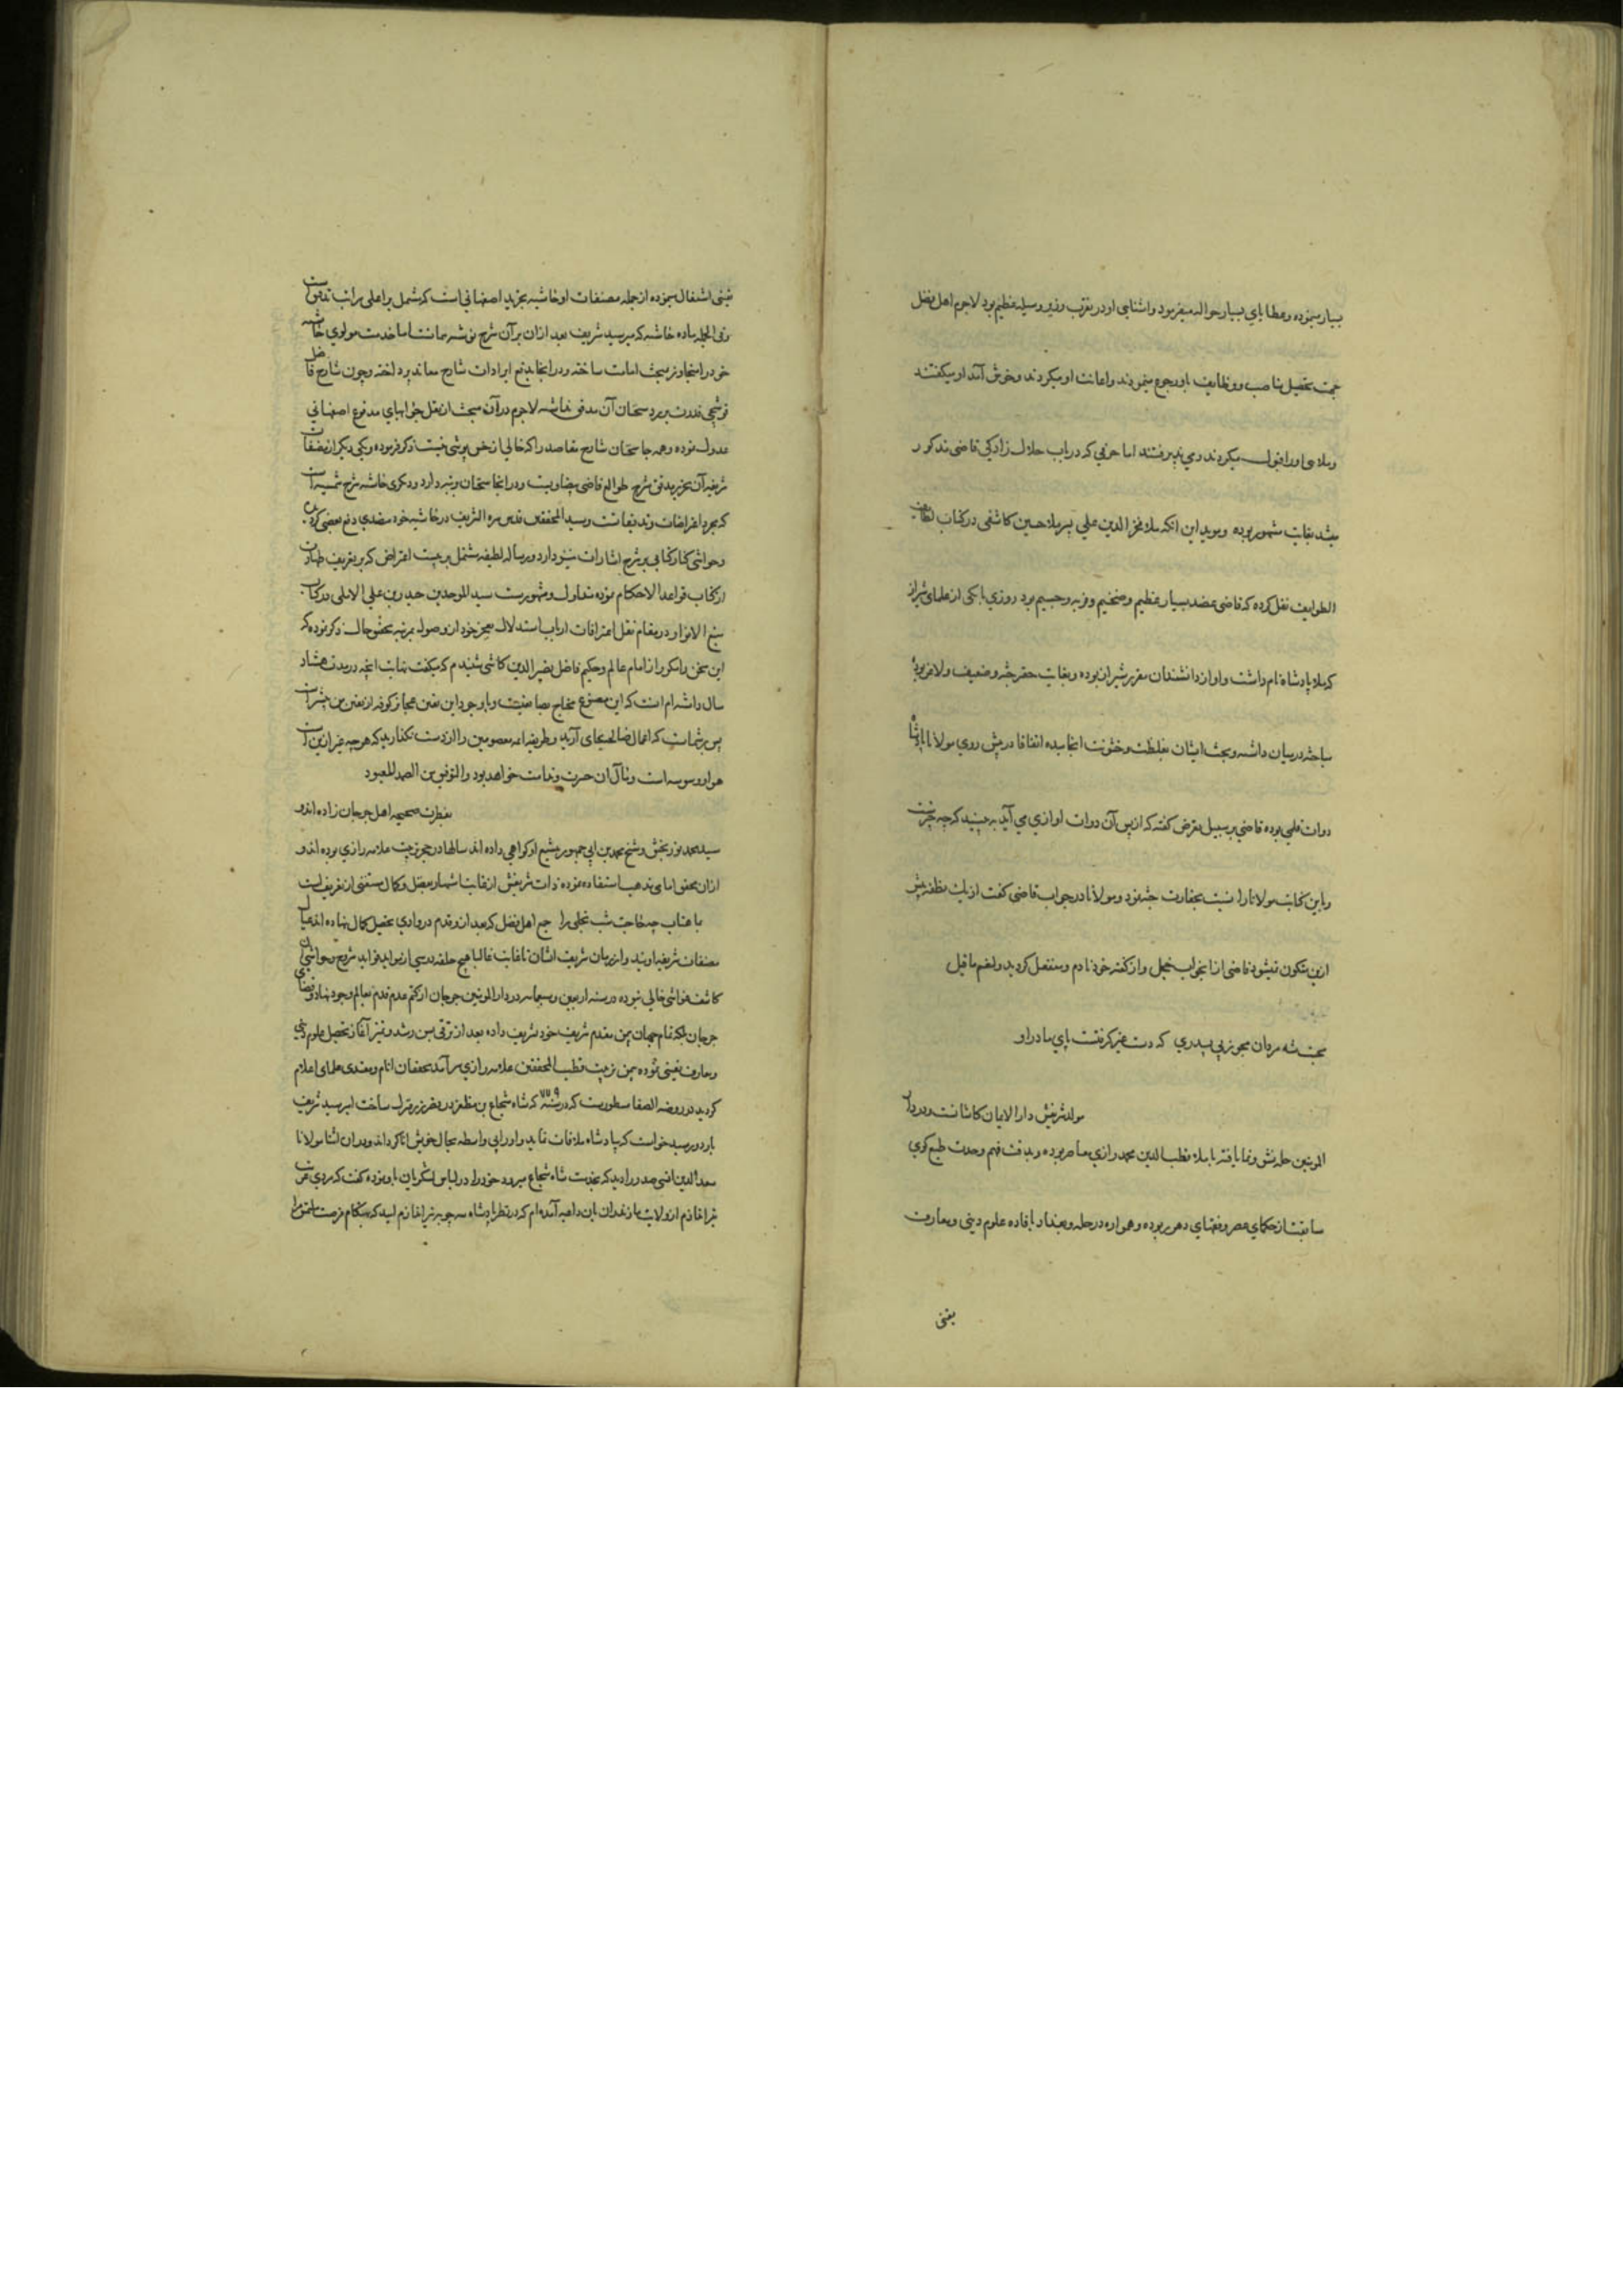 بسیار می‌نموده و عطایای بسیار حواله میفرمود و آشنایی او در تقرب وزیر وسیله عظیم بود لاجرم اهل فضل
جهت تحصیل مناصب و وظایف باو رجوع مینمودند و اعانت او میکردند و خوش آمد او میکفتند
و ملاحی او را قبول میکردند و می پذیرفتند اما حرفی که در باب حلال زادکی قاضی مذکور
میشد بغایت مشهور بوده و موید این انکه ملا فخر الدین علی پسر ملا حسین کاشفی در کتاب لطایف
الطوایف نقل کرده که قاضی عضد بسیار عظیم و ضخیم و فربه و جسیم بود روزی با یکی از علمای شیراز
که ملا پادشاه نام داشت و او از دانشمندان مقرر شیراز بوده و بغایت حقیر جثه و ضعیف و لاغر بود
مباحثه درمیان داشته و بحث ایشان بغلظت و خشونت انجامیده اتفاقا در پیش روی مولانا پادشاه
دوات قلمی بوده قاضی بر سبیل تعرض کفته که از پس آن دوات اوازی می آید به بینید که چه چیزست
و باین کنایت مولانا را نسبت بحقارت جثه نمود و مولانا در جواب قاضی کفت از یک نطفه بیش
ازین متکون نمیشود قاضی از انجواب خجل و از کفته خود نادم و منفعل کردید و لنعم ما قیل
محبت شه مردان مجو ز بی پدری که دست غیر کرفتست پای مادر او
مولد شریفش دار الایمان کاشانست و در دار
المومنین حله نشو و نما یافته با ملا قطب الدین محمد رازی معاصر بوده و بدقت فهم وحدت طبع کوی
سابقت از حکمای عصر و فقهای دهر ربوده و همواره در حله و بغداد بافاده علوم دینی و معارف
یقنی
یقینی اشتغال مینموده از جمله مصنفات او حاشیه تجرید اصفهانی است که مشتمل بر اعلی مراتب تدقیق است
و فی الجمله ماده حاشیه که میر سید شریف بعد ازان بر آن شرح نوشته همانست اما خدمت مولوی حاشیه
خود را متجاوز مبحث امامت ساخته و در انجا بدفع ایرادات شارح معاند پرداخته و چون شارح فاضل
قوشچی قدرت بر رد سخنان آن مدقق نداشته لاجرم در آن مبحث از نقل جوابهای مدفوع اصفهانی
عدول نموده و همه جا سخنان شارح مقاصد را که خالی از خس پوشی نیست ذکر فرموده و یکی دیکر از مصنفات
شریفه آن نحریر مدقق شرح طوالع قاضی بیضاویست و در انجا سخنان بامزه دارد و دیکری حاشیه شرح شمسیه است
که مجرد اعتراضات و تدقیقاتست و سید المحققین قدس سره الشریف در حاشیه خود متصدی دفع بعضی کردیده
و حواشی کنار کتابی بر شرح اشارات نیز دارد و رساله لطیفه مشتمل بر بیست اعتراض که بر تعریف طهارت
از کتاب قواعد الاحکام نموده متداول و مشهورست سید الموحدین حیدر بن علی الاملی در کتاب
منبع الانوار در مقام نقل اعترافات ارباب استدلال بعجز خود از وصول بمرتبه تحقق حال ذکر نموده که
این سخن را مکرر از امام عالم و حکیم فاضل نصیر الدین کاشی شنیدم که میکفت نهایت آنچه در مدت هشتاد
سال دانسته ام انست که این مصنوع محتاج بصانعیست و باوجود این یقین عجایز کوفه از یقین من بیشتر است
پس بر شماست که اعمال صالحه بجای آرید و طریقه ایمه معصومین را از دست نکذارید که هر چه غیر ازین است
هوا و وسوسه است و مآل آن حسرت و ندامت خواهد بود والتوفیق من الصمد المعبود
بفطرت صحیحه اهل جرجان زاده اند و
سید محمد نوربخش و شیخ محمد بن ابی جمهور بتشیع او کواهی داده اند سالها در حجر تربیت علامه رازی بوده اند و
ازان محقق امامی مذهب استفاده نموده ذات شریفش از غایت اشتهار بفضل و کمال مستغنی از تعریف است
با آفتاب چه حاجت شب تجلی را جمیع اهل فضل که بعد از و قدم در وادی تحصیل کمال نهاده اند عیال
مصنفات شریفه اویند و از زمان شریف ایشان تا غایت غالبا هیچ حلقه درسی از فواید شروح و حواشی آن
کاشف غواشی خالی نبوده در سنه اربعین و سبعمایه در دار المومنین جرجان از کتم عدم قدم بعالم وجود نهاد و فضای
جرجان بلکه تمام جهان بیمن مقدم شریف خود تشریف داده بعد از ترقی بسن رشد و تمیز آغاز تحصیل علوم دینی
و معارف یقینی نموده بیمن تربیت قطب المحققین علامه رازی سرآمد محققان انام و مقتدی علمای اعلام
کردید در روضه الصفا مسطورست که در سنه ٧٧٩ که شاه شجاع بن مظفر در قصر زرد نزول ساخت امیر سید شریف
باردو رسید خواست که پادشاه ملاقات نماید و او را بی واسطه بحال خویش اشنا کرداند و دران اثنا مولانا
سعد الدین انسی صدر را دید که بخدمت شاه شجاع میرود خود را در لباس لشکریان باو نموده کفت که مردی غریب
تیر اندازم از ولایت مازندران باین داعیه آمده ام که در نظر پادشاه سه چوبه تیر اندازم امید که بهنکام فرصت ملتمس مرا